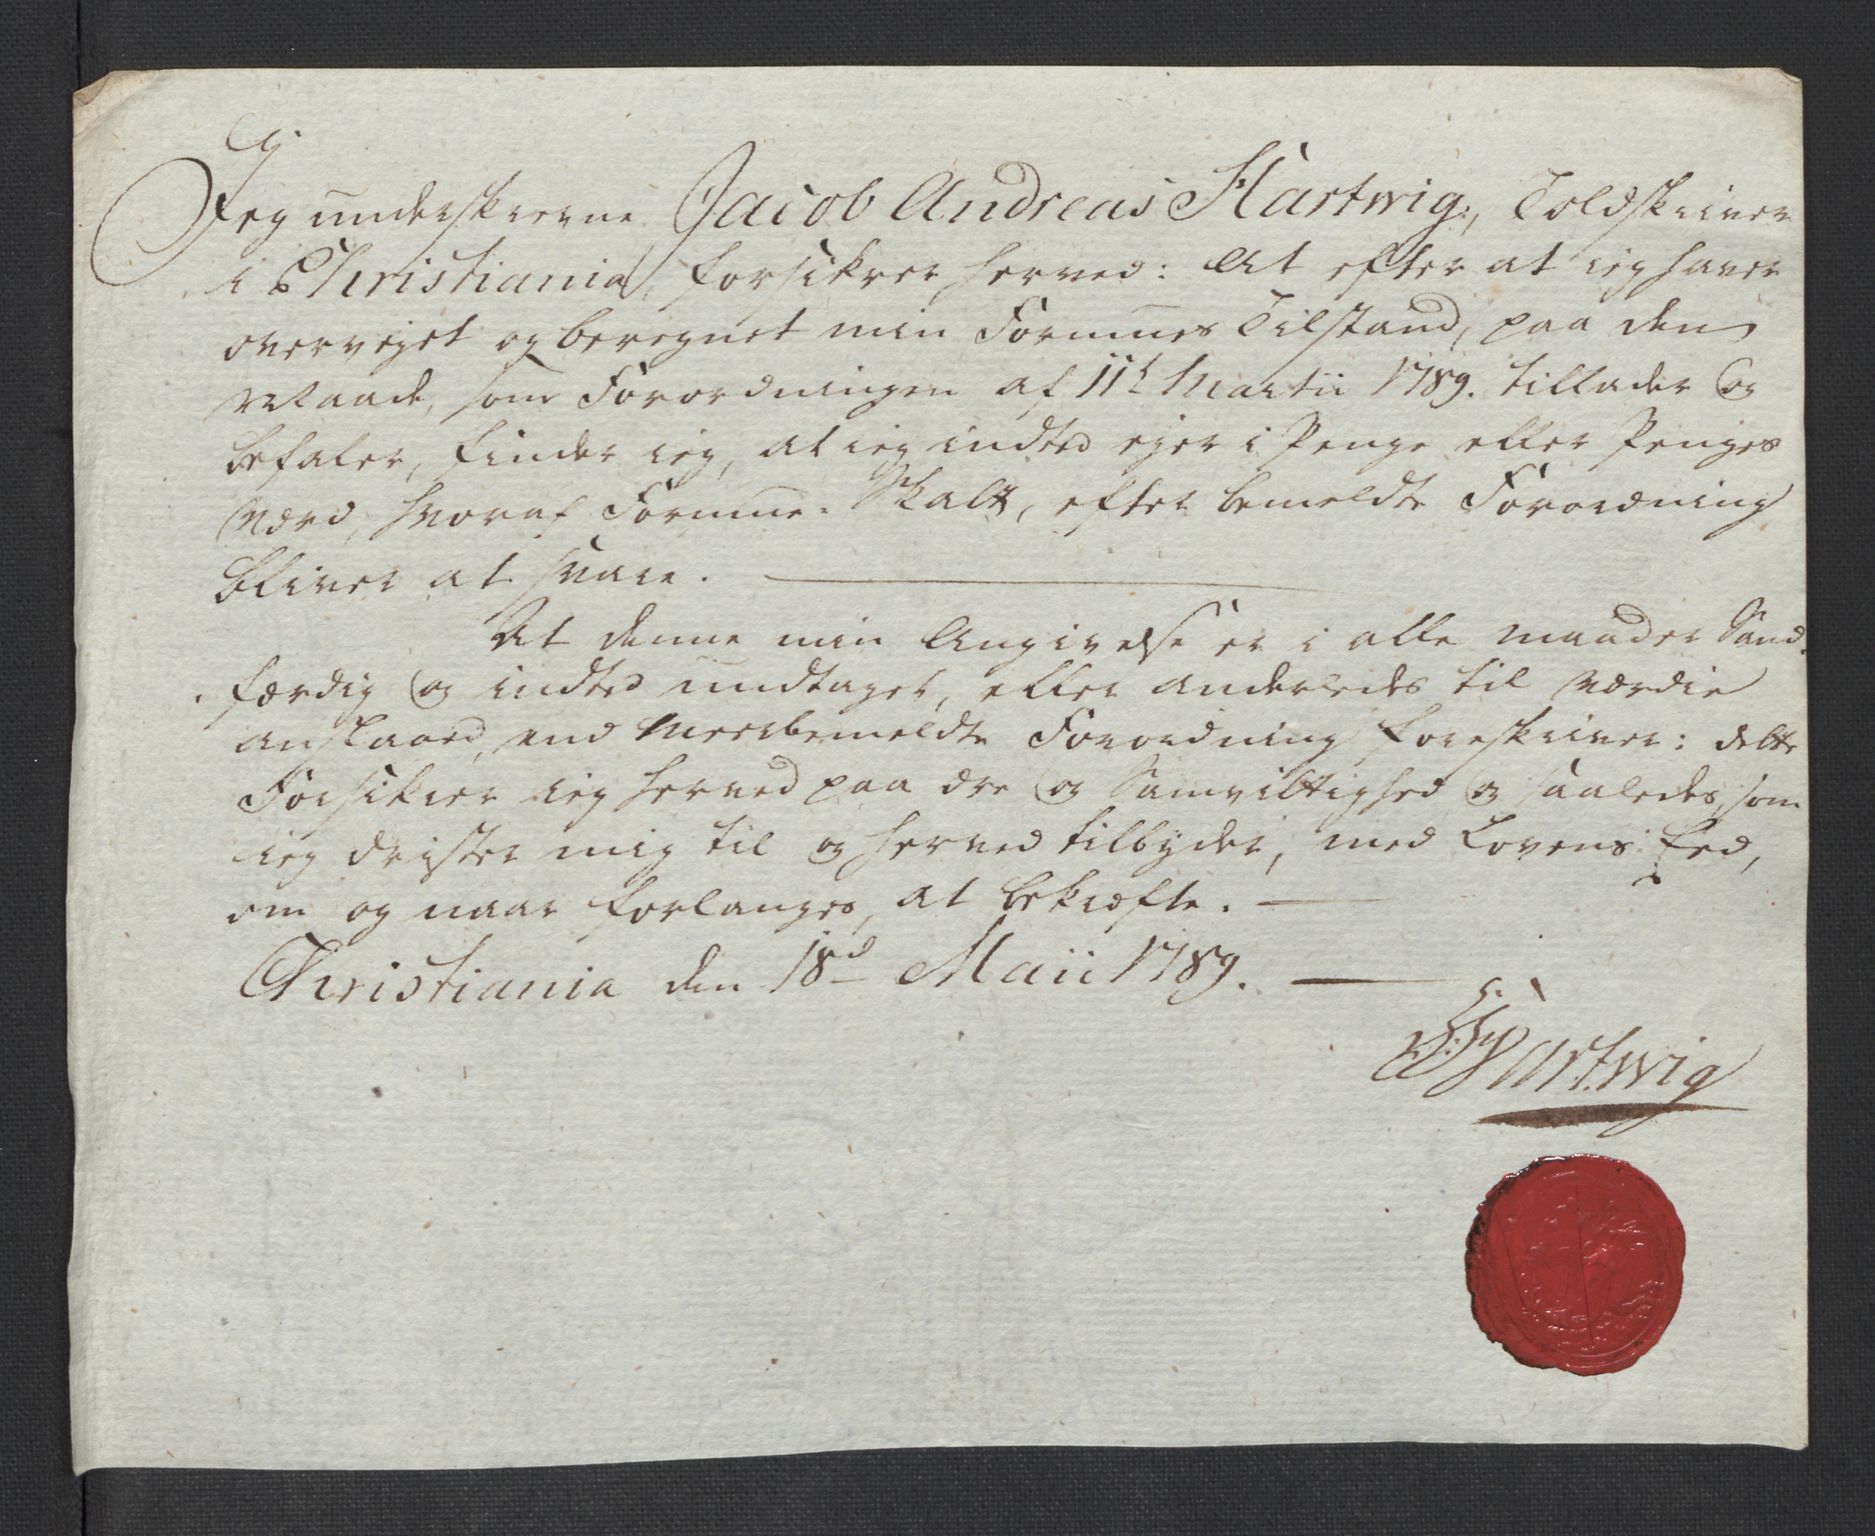 Jeg underskrevne Jacob Andreas Hartwig, Toldskriver
i Christiania, forsikrer herved: At efter at ieg haver
overvejet og beregnet min Formues Tilstand, paa den
Maade, som Forordningen af 11t Martii 1789. tillader og
befaler, finder ieg, at ieg indted ejer i Penge eller Penges
Værd, hvoraf Formue-Skatt, efter bemeldte Forordning
bliver at svare.
At denne min Angivelse er i alle maader Sand-
færdig og indted undtaget, eller anderledes til Værdie
anslaaed, end meerbemeldte Forordning foreskriver: dette
Forsikrer ieg herved paa Ære og Samvittighed og saaledes, som
ieg drister mig til og herved tilbyder, med Lovens Eed,
om og naar forlanges, at bekræfte.
Christiania den 18d Maii 1789.
Hartwig